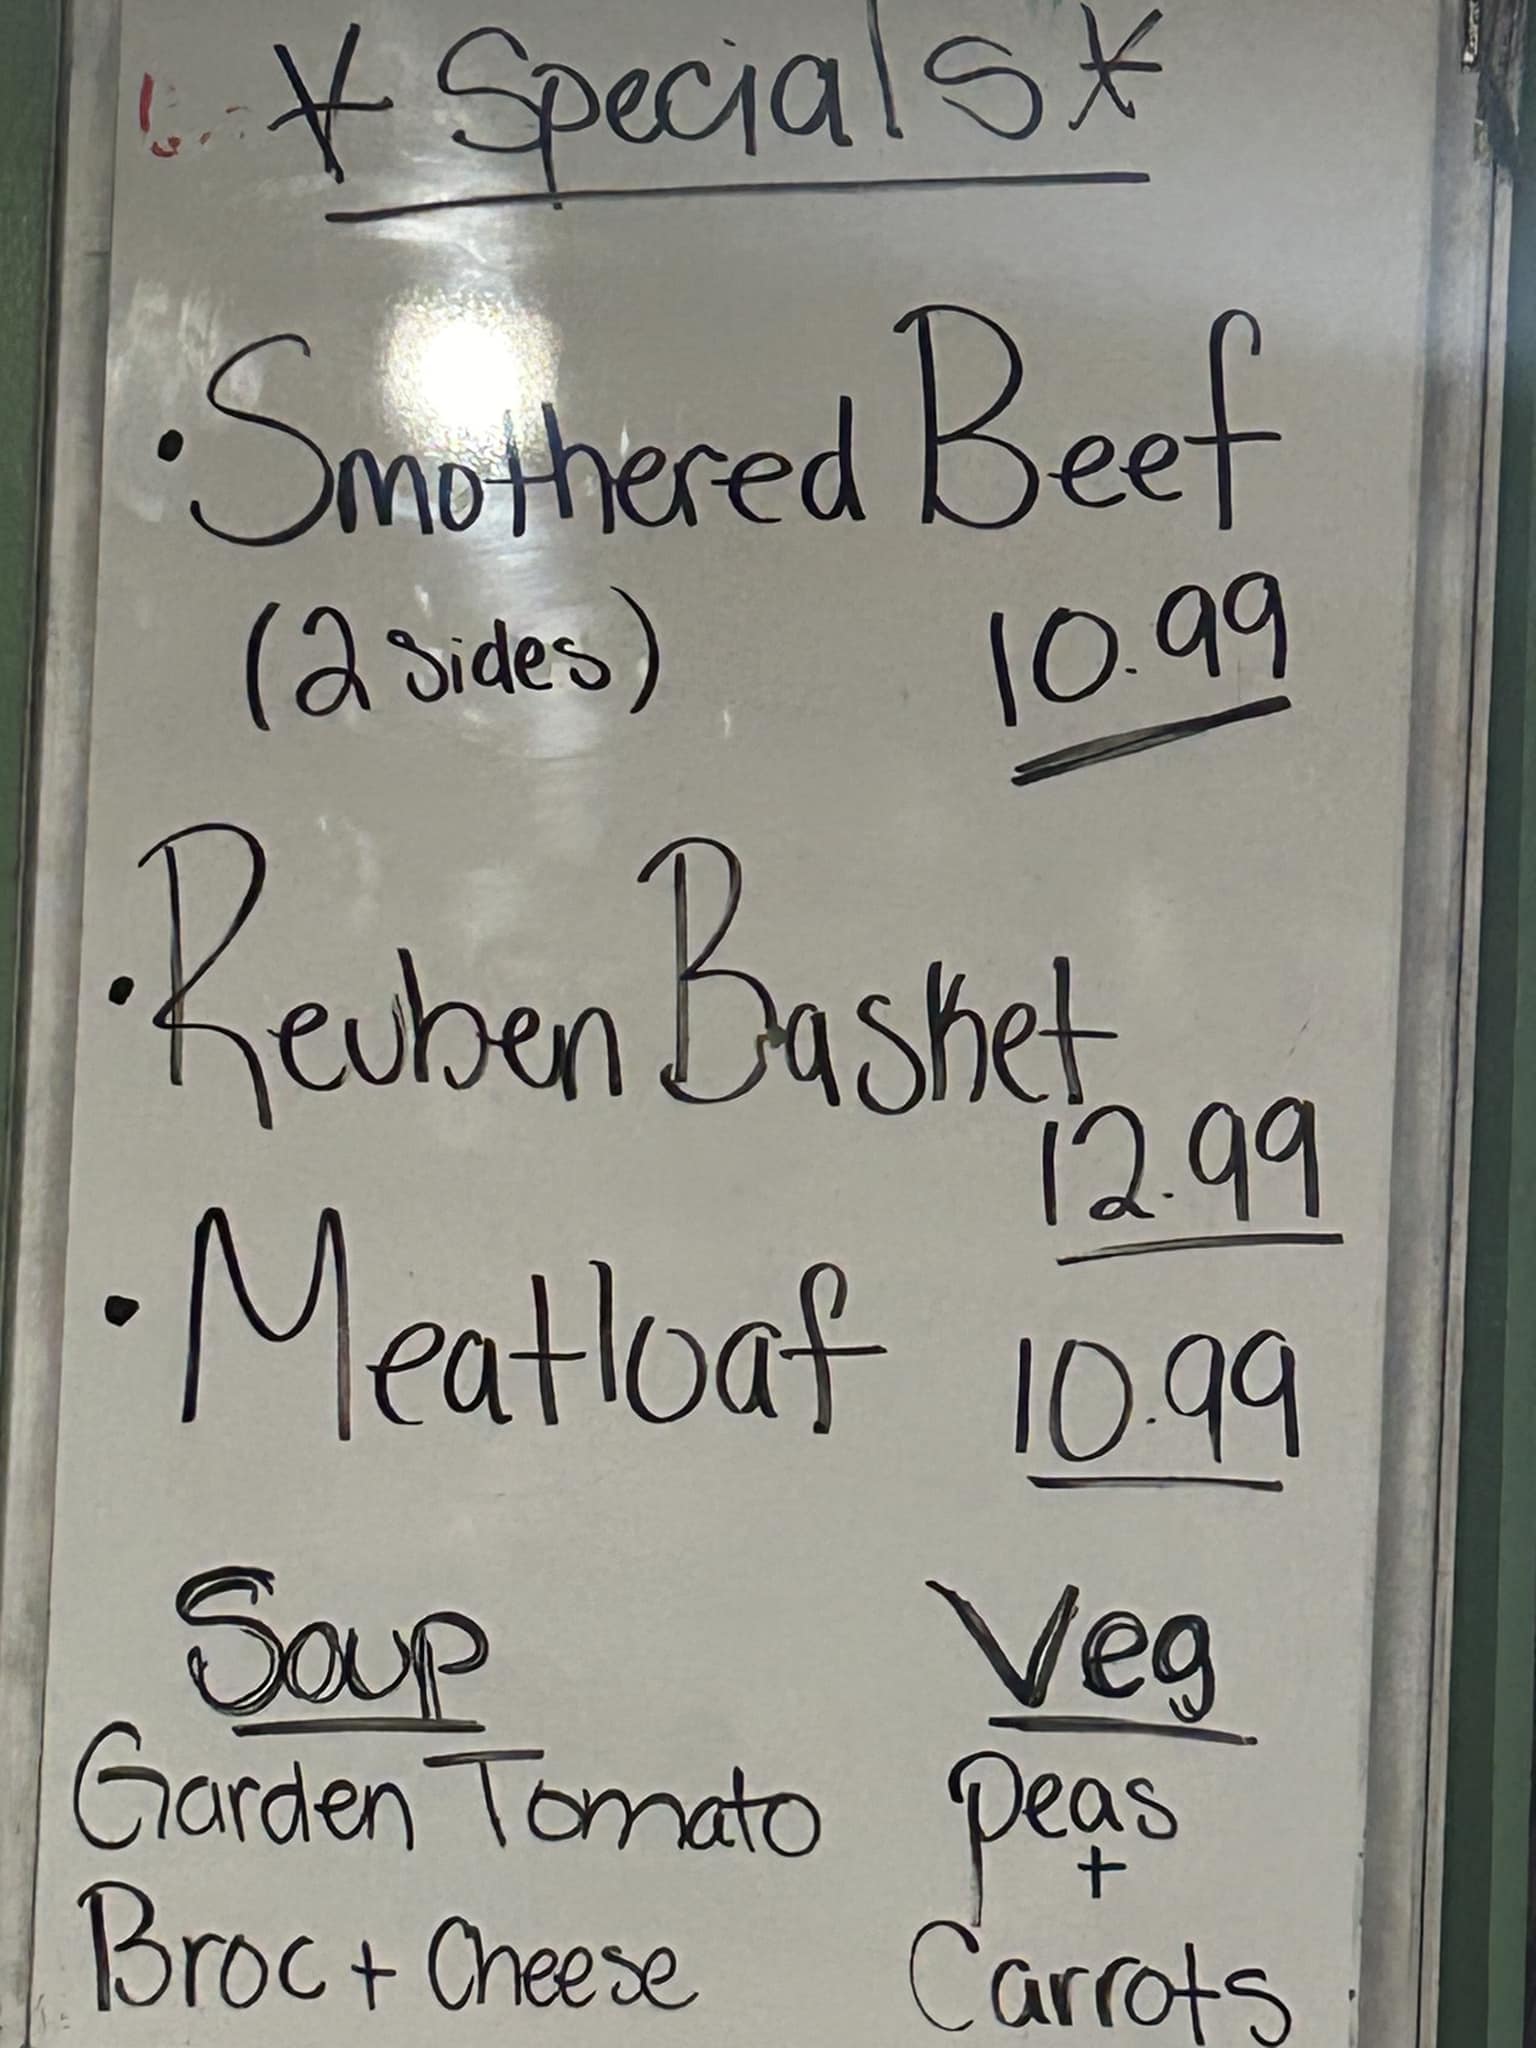 * Specials *
• Smothered Beef
(2 sides) 10.99
• Reuben Basket
12.99
• Meatloaf 10.99
Soup Veg
Garden Tomato Peas
+
Broc + Cheese Carrots